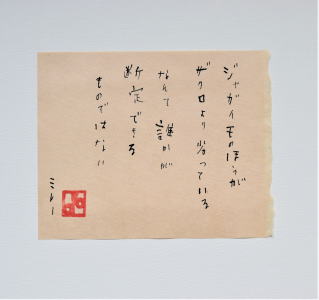 ジャガイモのほうが
ザクロより劣っている
なんて 誰かが
断定できる
ものではない
ミレー